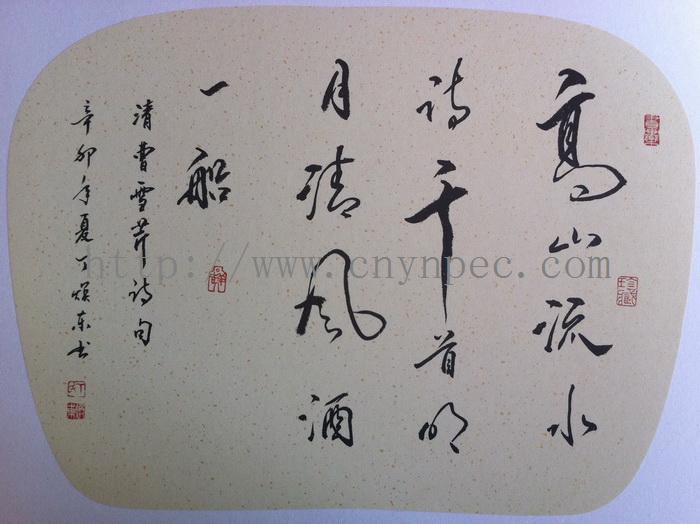 高山流水
诗千首明
月清风酒
一船
清曹雪芹诗句
辛卯年夏丁焕东书
珍藏
http://www.cnynpec.com